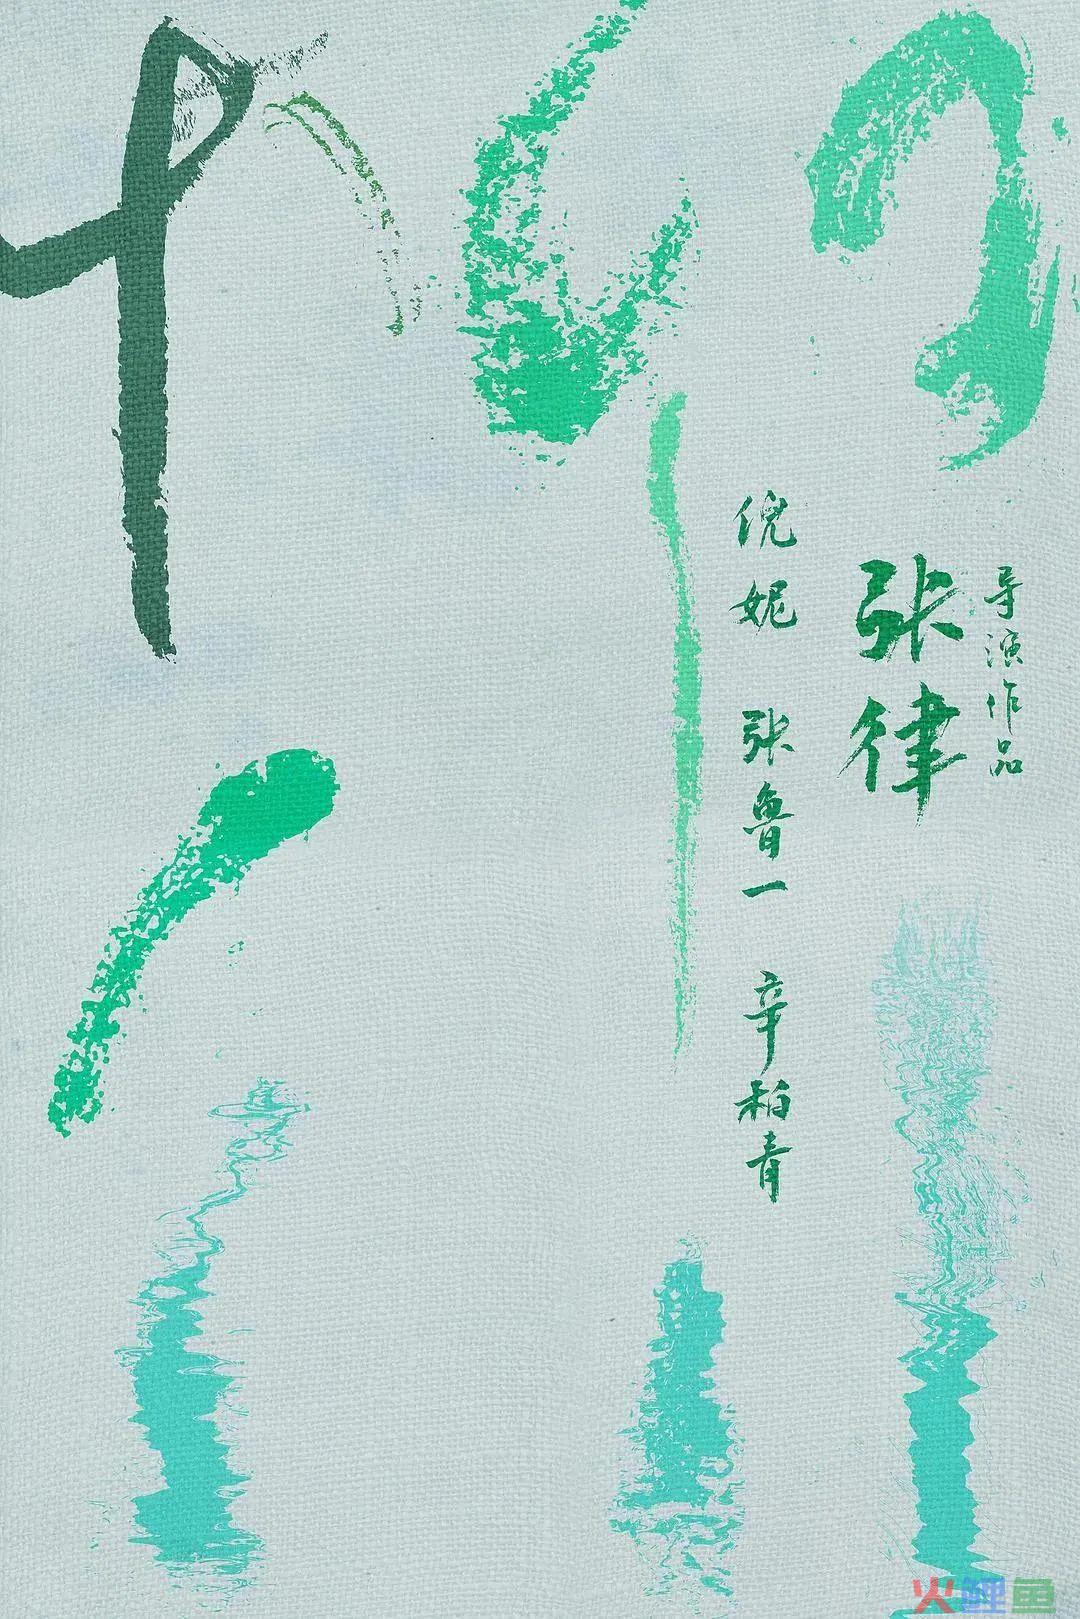 柳川
导演作品
张律
倪妮 张鲁一 辛柏青
火鲤鱼